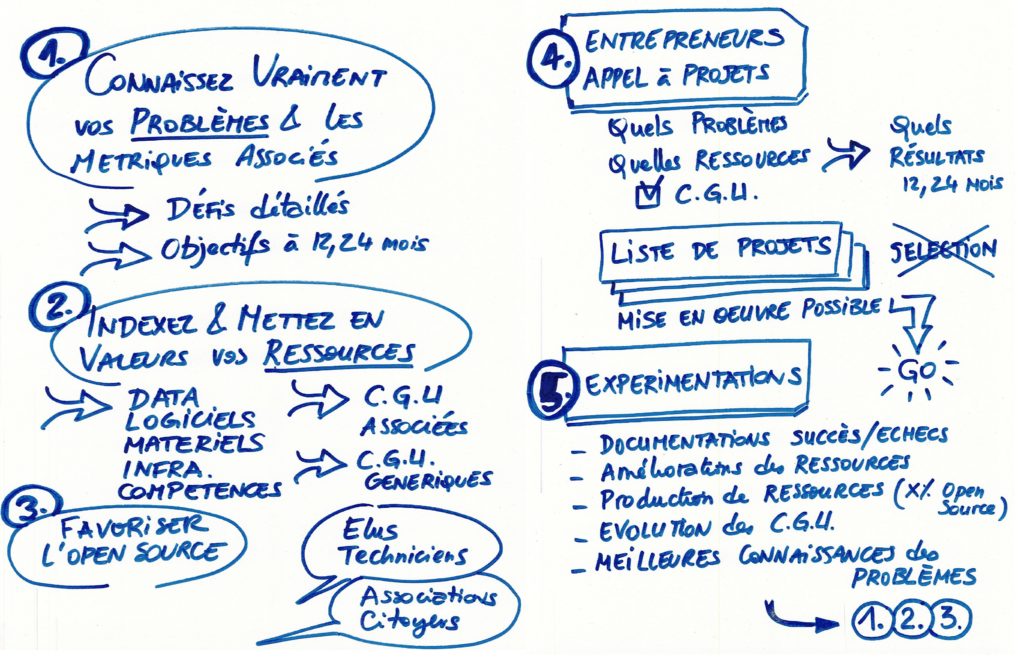 1.
CONNAISSEZ VRAIMENT
VOS PROBLÈMES & LES
METRIQUES ASSOCIÉS
DÉFIS détaillés
Objectifs à 12,24 mois
2.
INDEXEZ & METTEZ EN
VALEURS VOS RESSOURCES
DATA
LOGICIELS
MATERIELS
INFRA.
COMPETENCES
C.G.U
ASSOCIÉES
C.G.U.
GENERIQUES
3.
FAVORISER
L'OPEN SOURCE
Elus
Techniciens
Associations
Citoyens
4.
ENTREPRENEURS
APPEL à PROJETS
Quels PROBLÈMES
Quelles RESSOURCES
C.G.U.
Quels
RÉSULTATS
12,24 MOIS
LISTE DE PROJETS
SELECTION
MISE EN OEUVRE POSSIBLE
GO
5.
EXPERIMENTATIONS
- DOCUMENTATIONS SUCCÈS/ECHECS
- Améliorations des RESSOURCES
- Production de RESSOURCES (X% Open
Source)
- EVOLUTION des C.G.U.
- MEILLEURES CONNAISSANCES des
PROBLÈMES
1. 2. 3.